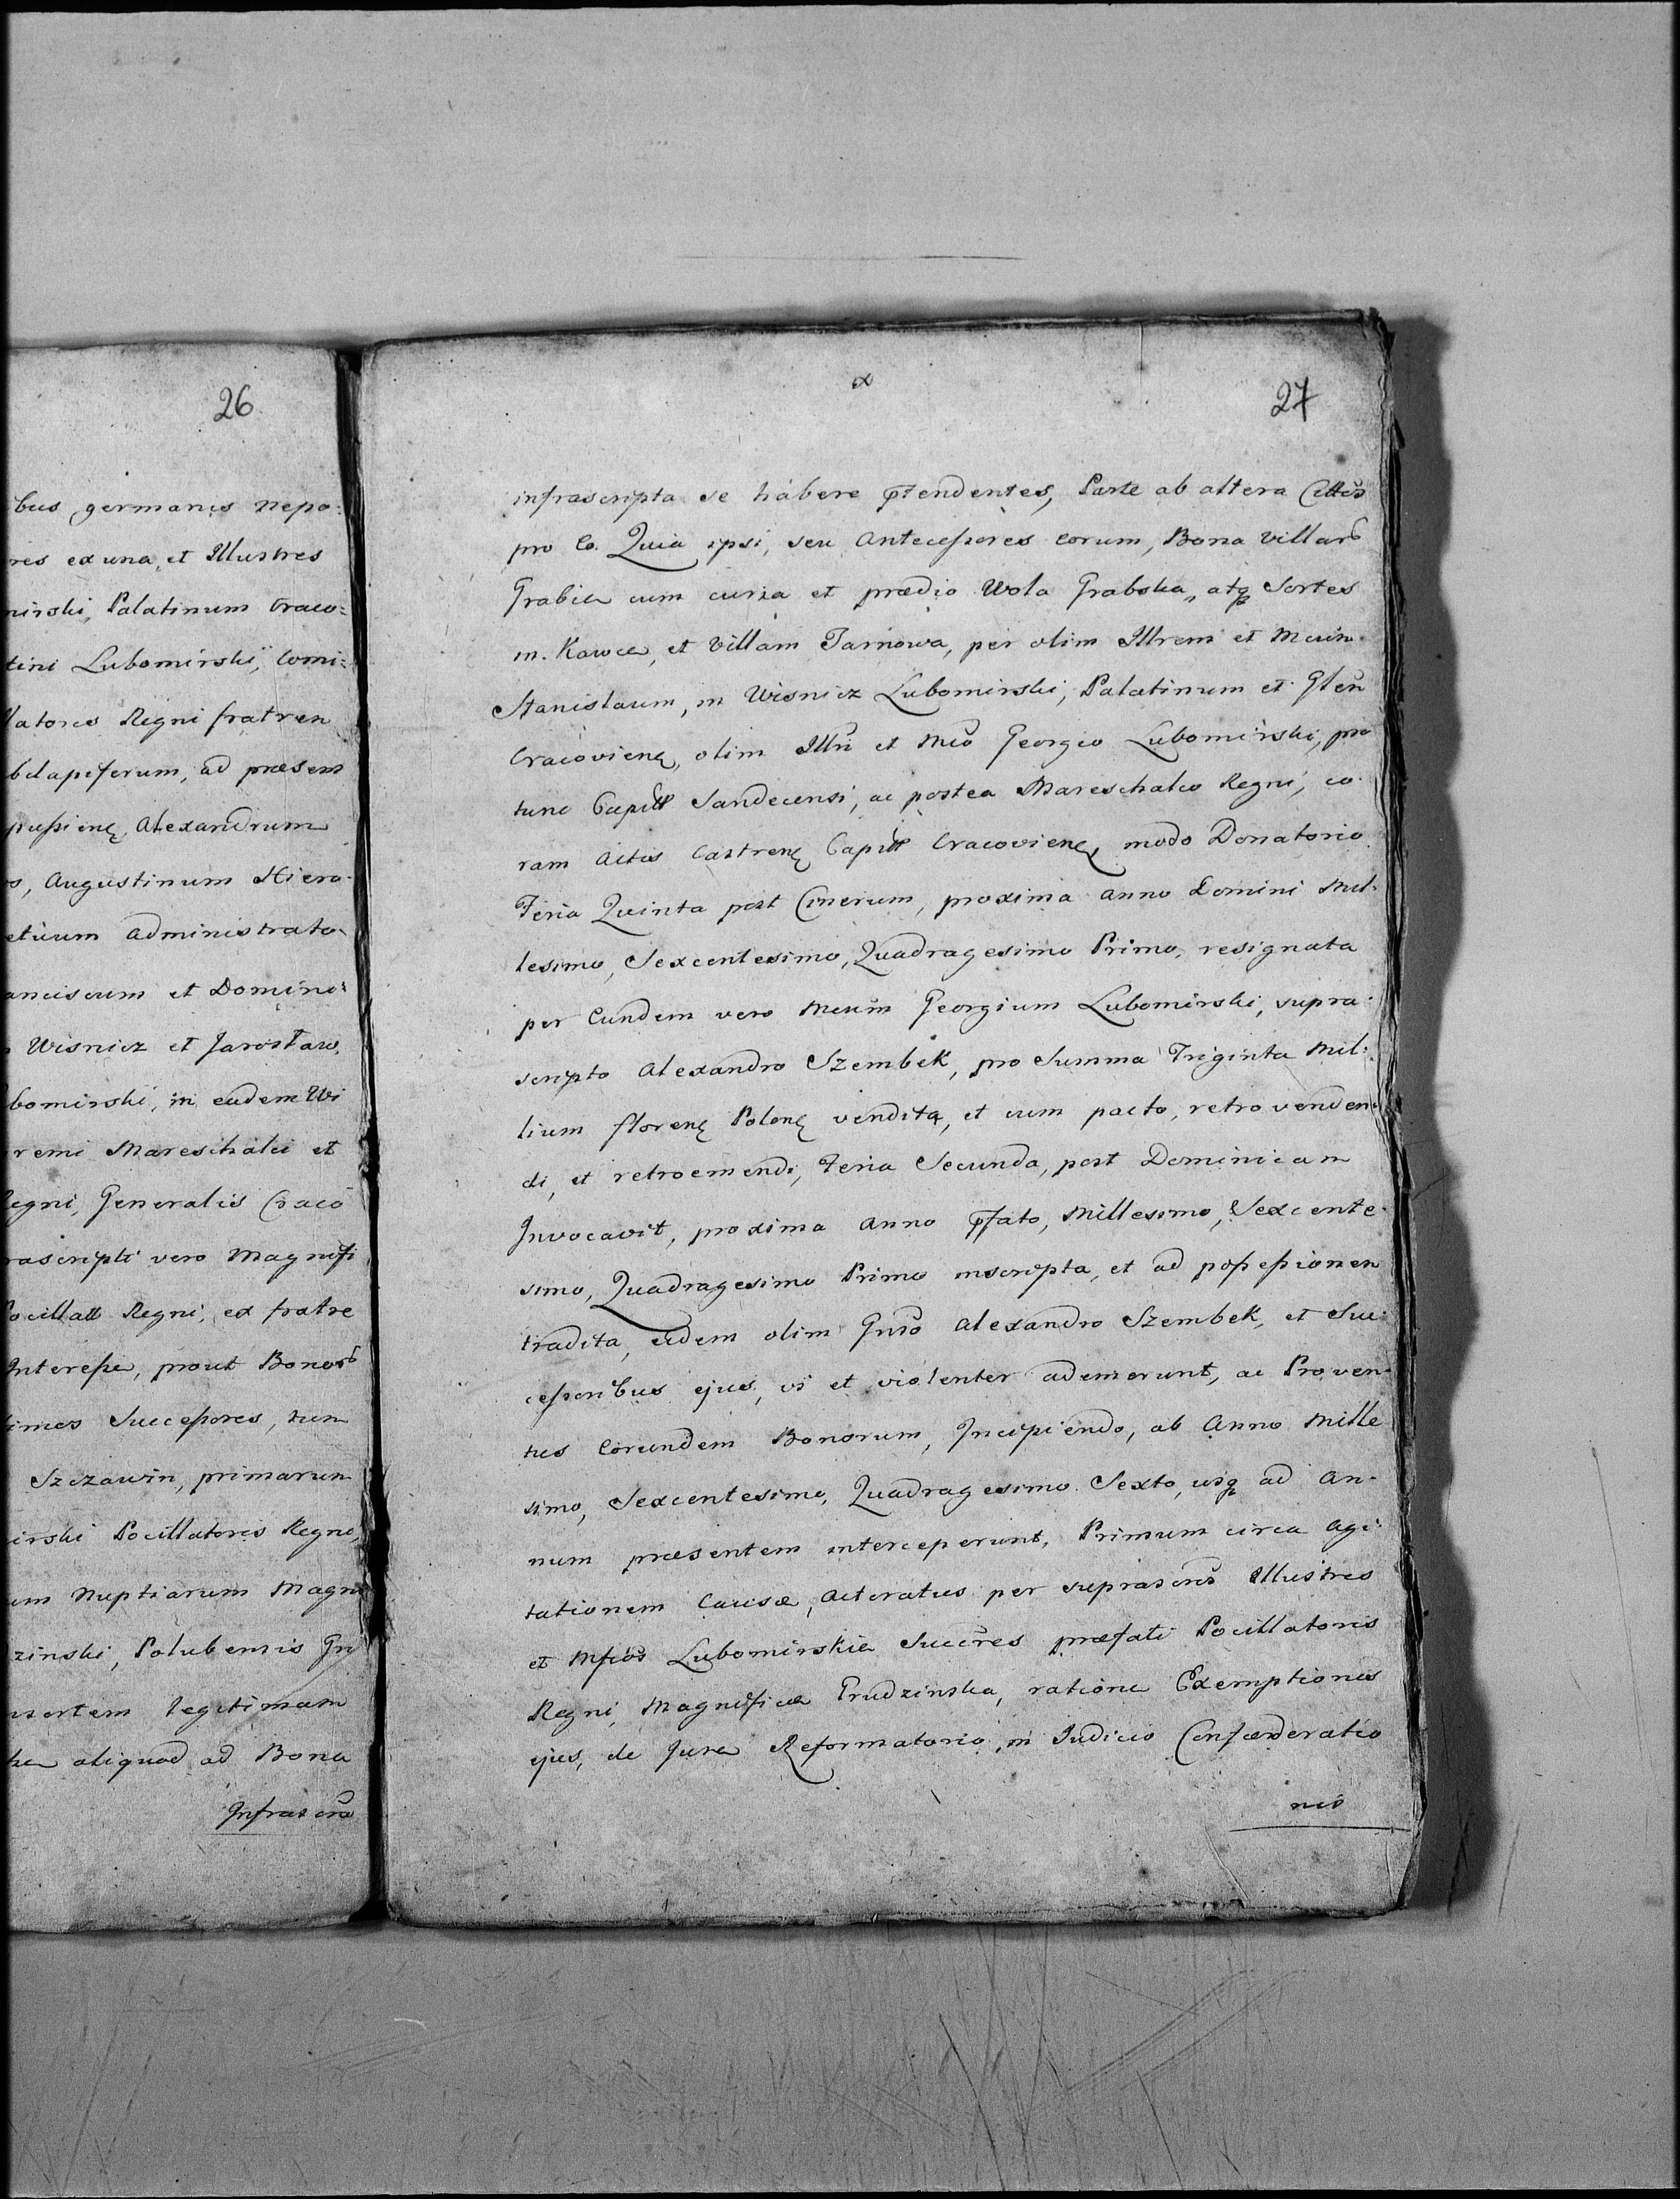 26
bus germanis nepo:
res ex una, et Illustres
mirski, Palatinum Craco:
tini Lubomirski, Comi:
latores Regni fratrem
bdapiferum, ad præsens
Alexandrum
Augustinum Hiero:
administrato:
anciscum et Domino:
Wisnicz et Jarosław,
bomirski, in eadem Wi
remi Mareschalci et
Regni, Generalis Craco
rascripti vero Magnifi
Pocillatt Regni, ex fratre
Interesse, prout Bonor
times Successores, tum
Szczawin, primarum
irski Pocillatoris Regni,
um Nuptiarum Magni
zinski, Polubensis
nsortem legitimam
aliquod ad Bona
Infrascrã
27
infrascripta se habere p̃tendentes, Parte ab altera Cittõs
pro Eo. Quia ipsi, seu Antecessores eorum, Bona Villar
Grabie cum curia et prædio Wola Grabska, atq Sortes
in Kawce, et Villam Tarnowa, per olim Illrem et Mcum
Stanislaum, in Wisnicz Lubomirski, Palatinum et Glem
Cracovien, olim Illri et Mco Georgio Lubomirski, pro
tunc Capitt Sandecensi, ac postea Mareschalco Regni, co
ram Actis Castren Capitt Cracovien, modo Donatorio
Feria Quinta post Cinerum, proxima anno Domini Mil:
lesimo, Sexcentesimo, Quadragesimo Primo, resignata
per Eundem vero Mcum Georgium Lubomirski, supra:
scripto Alexandro Szembek, pro Summa Triginta Mil:
lium floren Polon vendita, et cum pacto, retrovenden:
di, et retroemendi, Feria Secunda, post Dominicam
Invocavit, proxima Anno p̃fato, Millesimo, Sexcente
simo, Quadragesimo Primo inscripta, et ad possessionem
tradita, eidem olim Gnso Alexandro Szembek, et Suc:
cessoribus ejus, vi et violenter ademerunt, ac Proven:
tus Eorundem Bonorum, Incipiendo, ab Anno Mille
simo, Sexcentesimo, Quadragesimo Sexto, usq ad An:
num præsentem interceperunt, Primum circa Agi:
tationem Causæ, Actoratus per suprascrõs Illustres
et Mfcos Lubomirskie Succres præfati Pocillatoris
Regni, Magnificæ Grudzinska, ratione Exemptionis
ejus, de Jure Reformatorio, in Judicio Confœderatio
nis